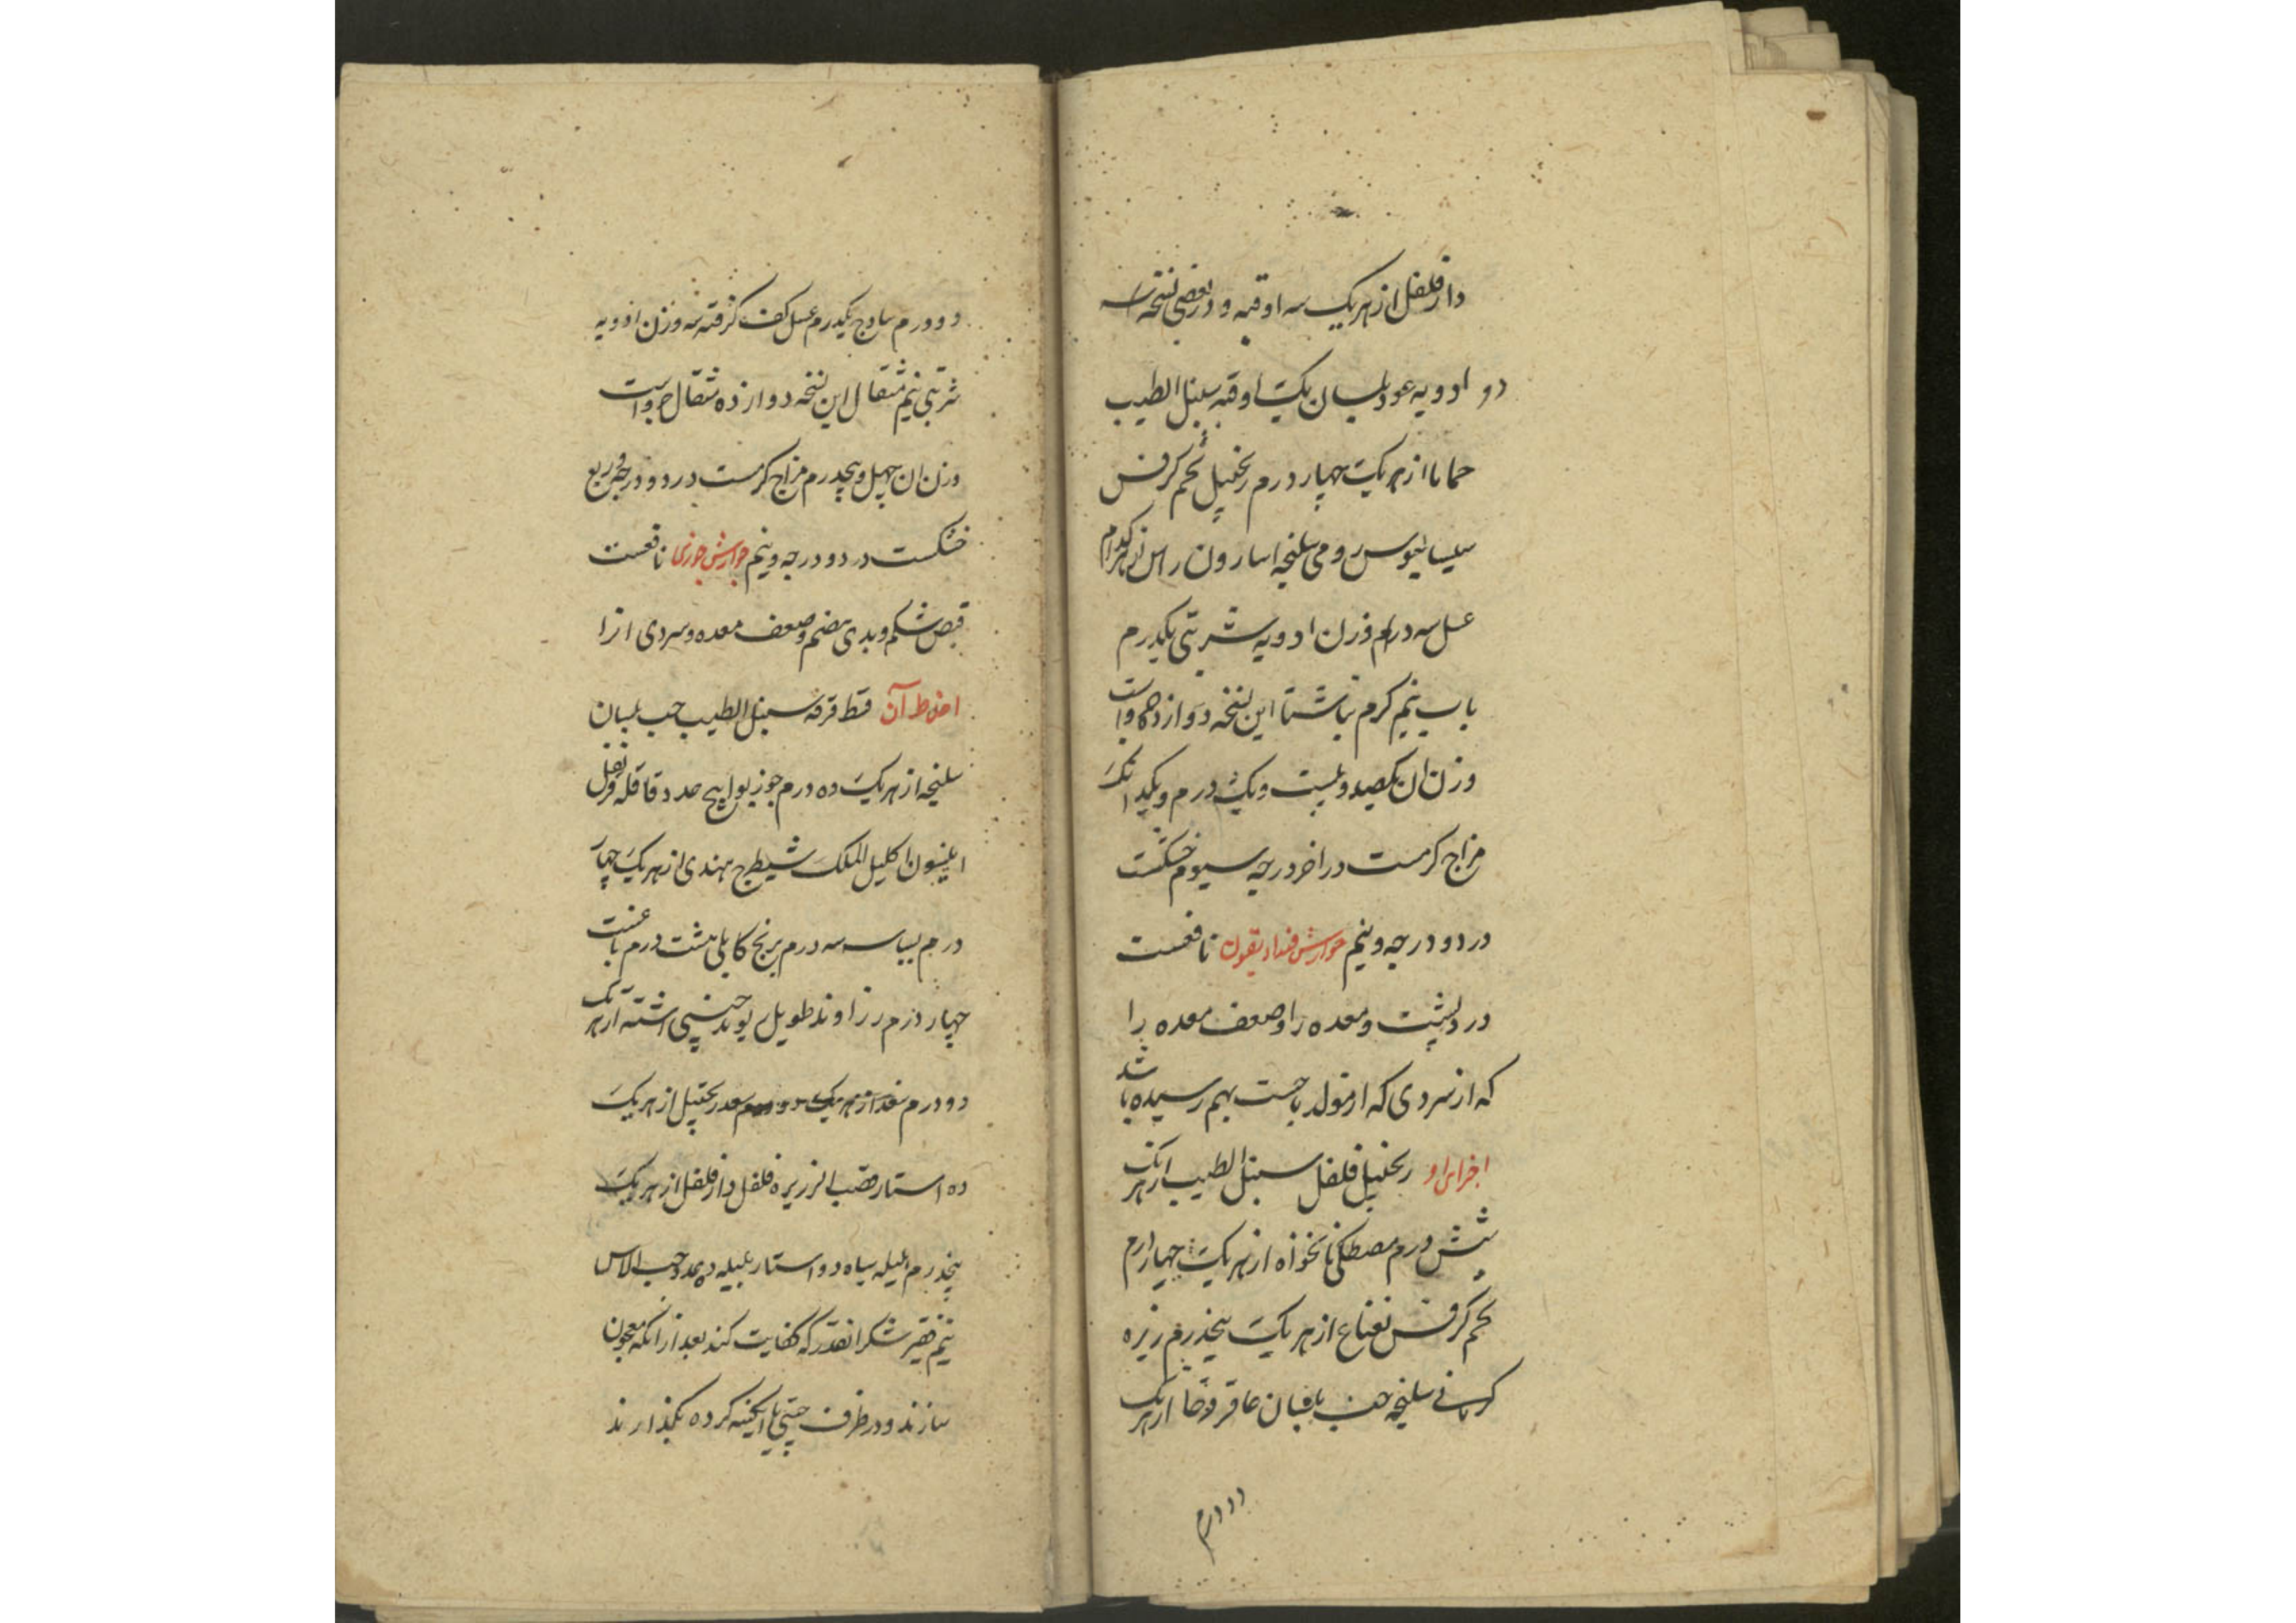 دارفلفل از هر یک سه اوقیه و در بعضی نسخه سه
دو ادویه عود بلسان یک اوقیه سنبل الطیب
حماما از هر یک چهار درم زنجبیل تخم کرفس
سیسالیوس رومی سلیخه اسارون راسن از هر کدام
عسل سه درم وزن ادویه شربتی یکدرم
باب نیم گرم ناشتا این نسخه دوازده جزو است
وزن ان یکصد و بیست و یک درم و یکدانک
مزاج گرمست در اخر درجه سیوم خشکست
در دو درجه و نیم جوارش فنداریقون نافعست
درد پشت و معده را و ضعف معده را
که از سردی که از تولد یاجست بهم رسیده باشد
اجزای او زنجبیل فلفل سنبل الطیب از هر یک
شش درم مصطکی نانخواه از هر یک چهار درم
تخم کرفس نعناع از هر یک پنجدرم زیره
کرمانی سلیخه حب بلسان عاقرقرحا از هر یک
دو درم
دو درم سادج یکدرم عسل کف گرفته سه وزن ادویه
شربتی نیم مثقال این نسخه دوازده مثقال جزو است
وزن ان چهل و پنجدرم مزاج گرمست در دو درجه و ربع
خشکست در دو درجه و نیم جوارش جوزی نافعست
قبض شکم و بدی هضم و ضعف معده و سردی انرا
اخلاط آن قسط قرفه سنبل الطیب حب بلسان
سلیخه از هر یک ده درم جوز بوا پنج عدد قاقله قرنفل
انیسون اکلیل الملک شیطرج هندی از هر یک چهار
درم بسباسه سه درم برنج کابلی هشت درم
چهار درم زراوند طویل ریوند چینی اشنه از هر یک
دو درم سعد زنجبیل از هر یک
ده استار قصب الزریره فلفل دارفلفل از هر یک
پنجدرم هلیله سیاه دو استار بلیله ده عدد حب الاس
نیم قفیز شکر انقدر که کفایت کند بعد از انکه معجون
سازند و در ظرف چینی یا ابکینه کرده بکذارند